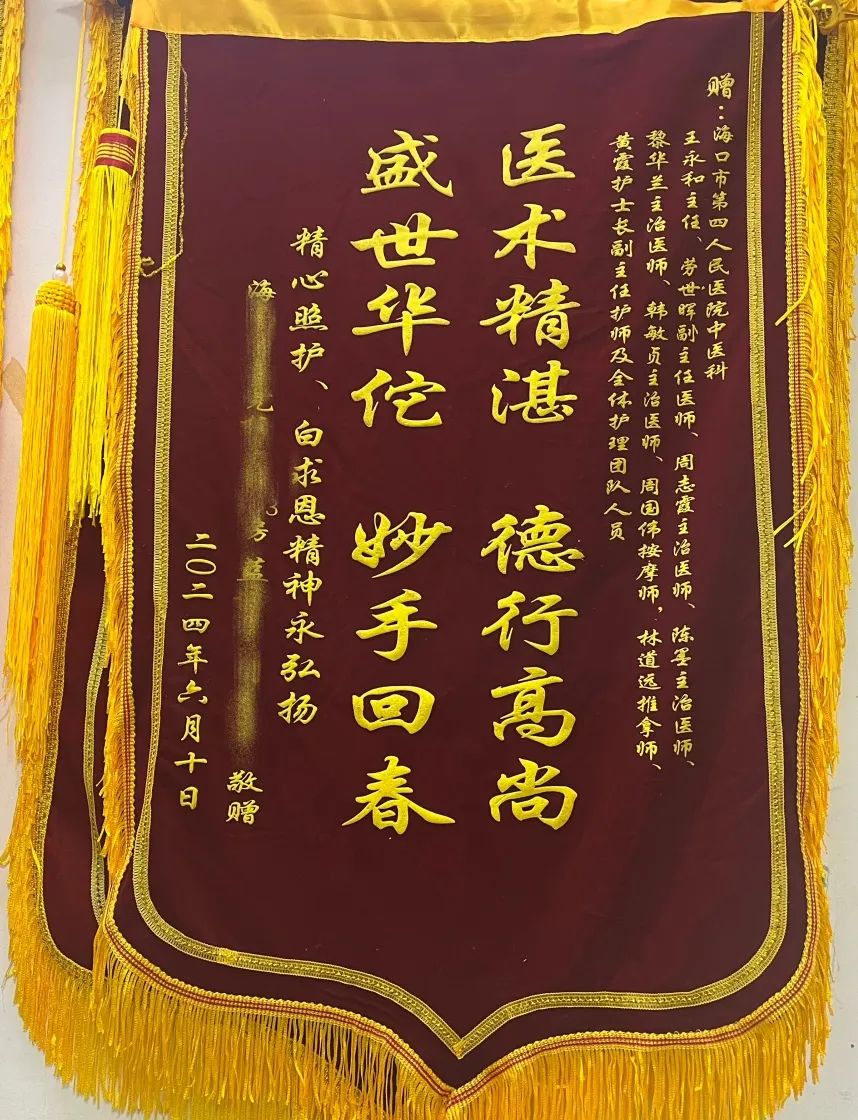 赠：海口市第四人民医院中医科
王永和主任、劳世晖副主任医师、周志霞主治医师、陈墨主治医师、
黎华兰主治医师、韩敏贞主治医师、周国伟按摩师，林道远推拿师、
黄霞护士长副主任护师及全体护理团队人员
医术精湛 德行高尚
盛世华佗 妙手回春
精心照护、白求恩精神永弘扬
海 敬赠
二〇二四年六月十日